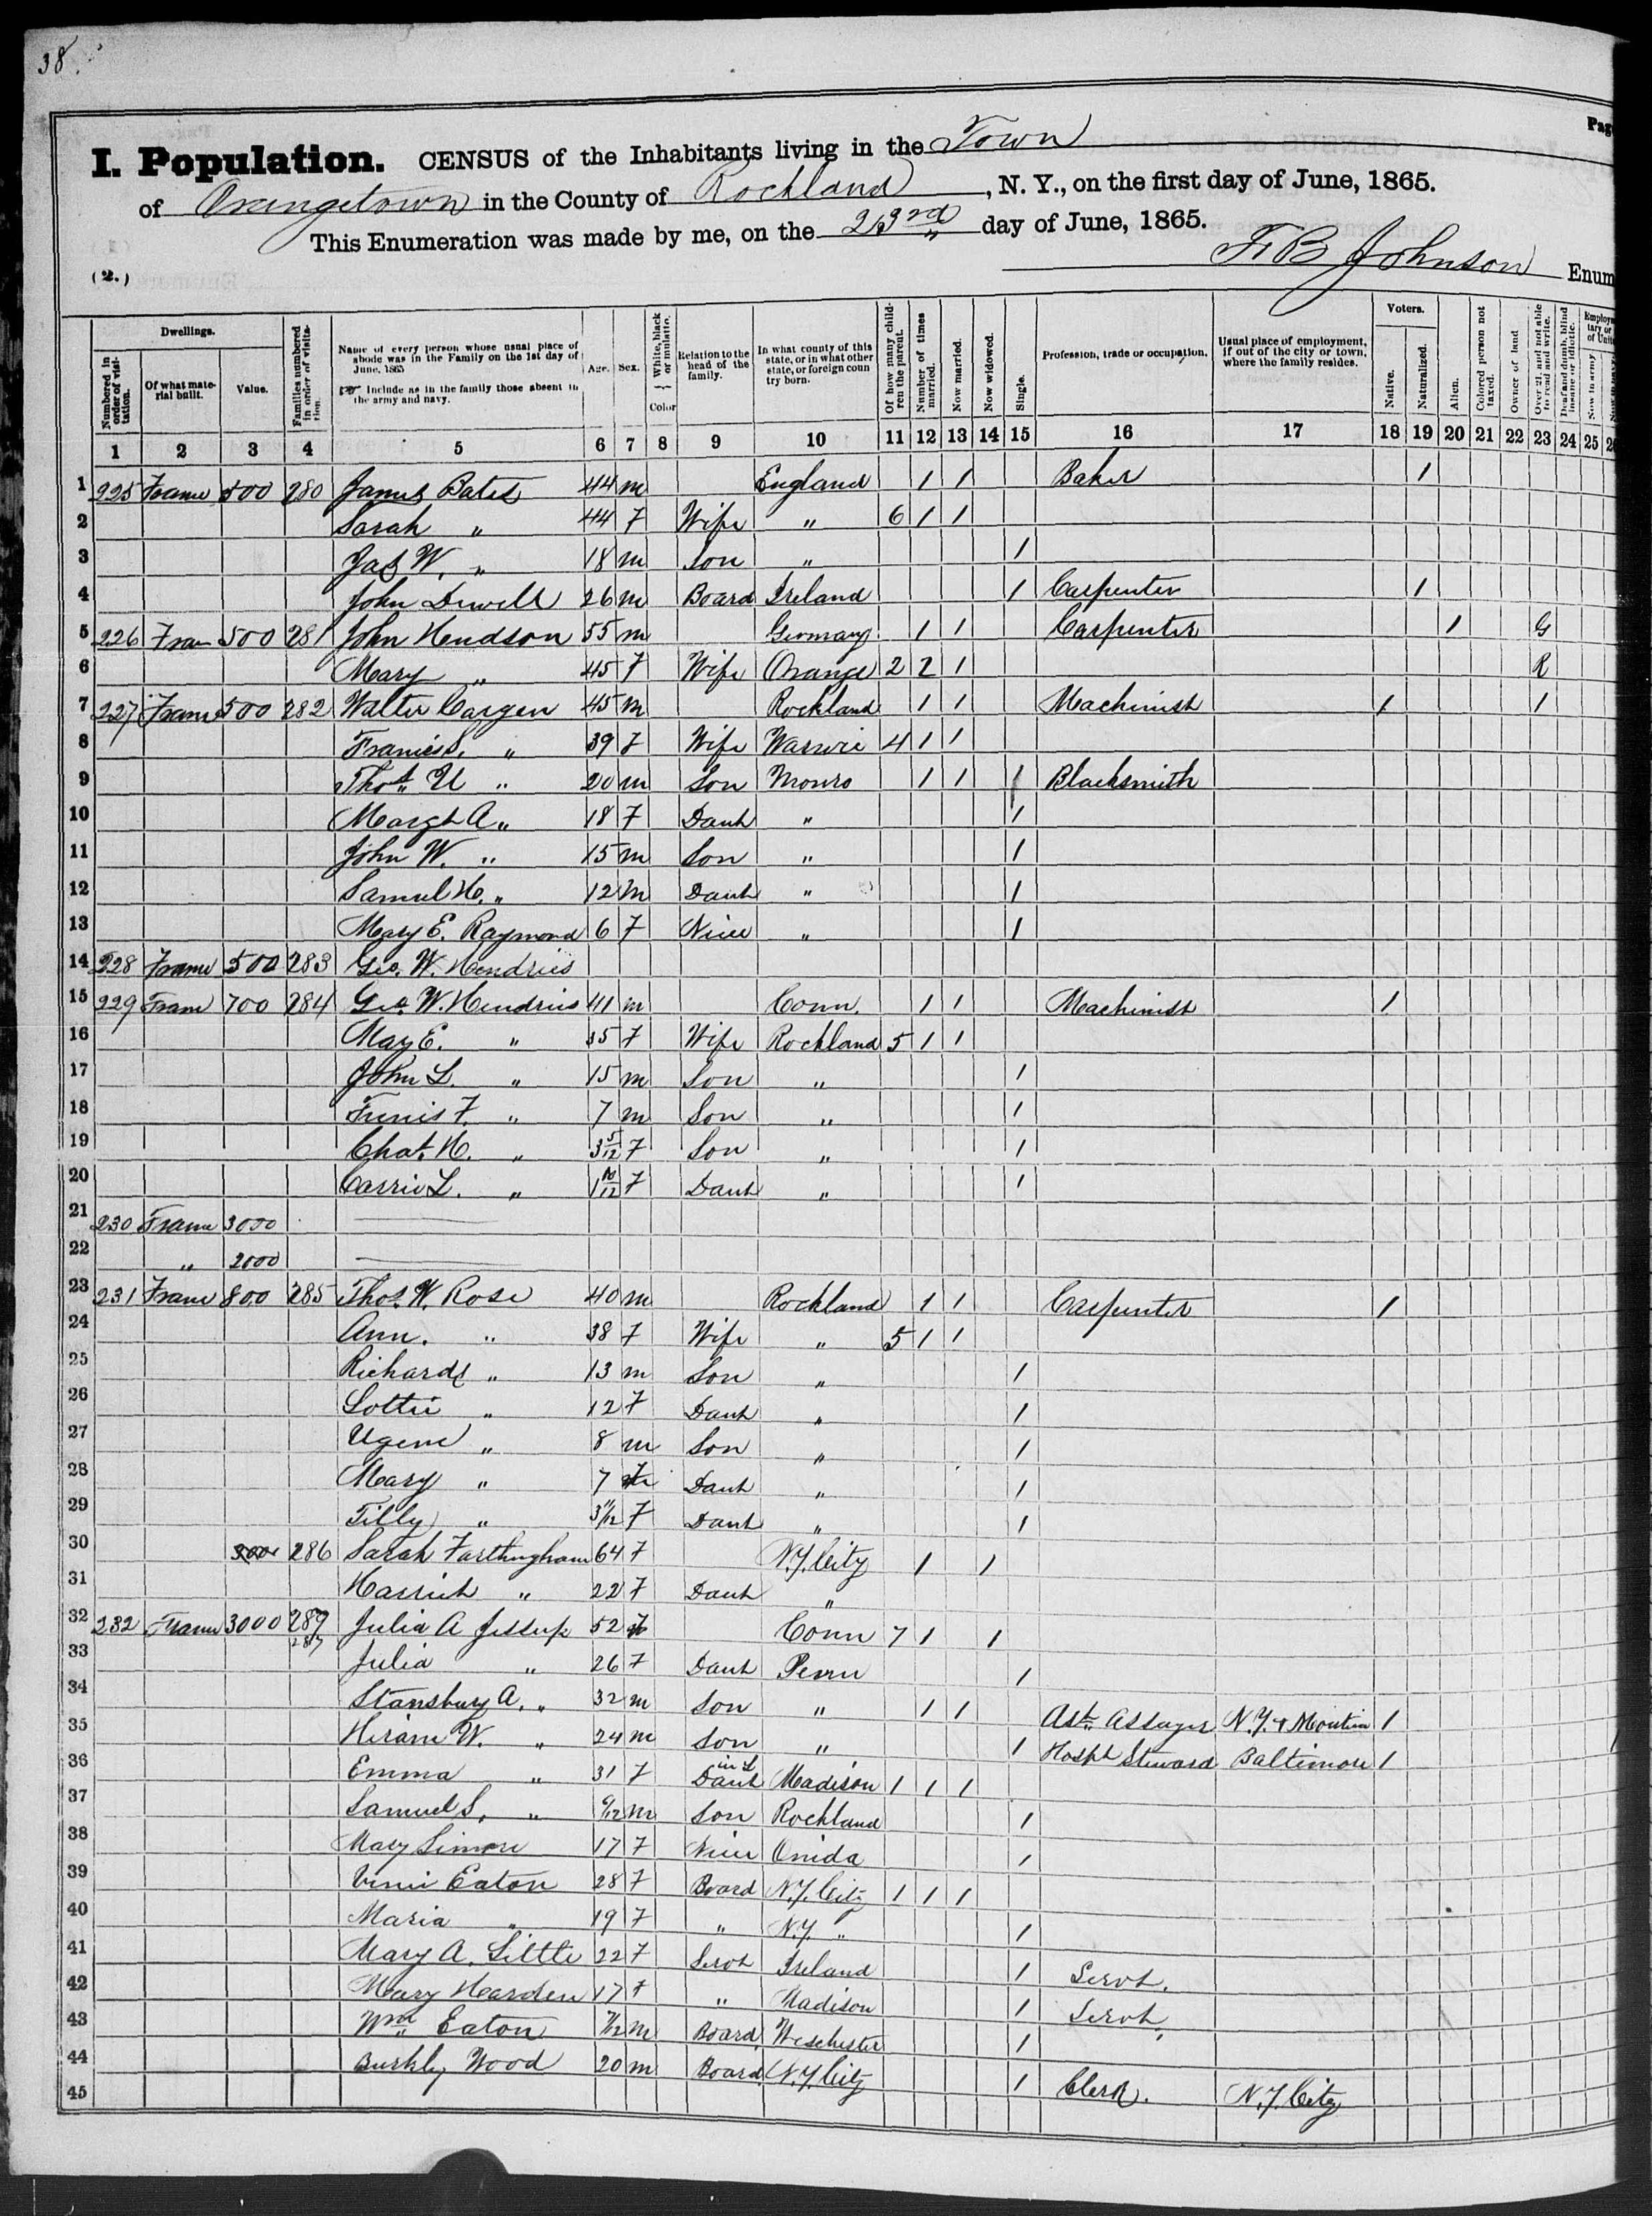 38.
Page
I. Population. CENSUS of the Inhabitants living in the Town
of Orangetown in the County of Rockland, N. Y., on the first day of June, 1865.
This Enumeration was made by me, on the 23rd day of June, 1865.
(2.) F. B. Johnson Enum
Dwellings. Voters. Employ
Numbered in order of visitation. Of what material built. Value. Families numbered in order of visitation. Name of every person whose usual place of abode was in the Family on the 1st day of June, 1865 Include as in the family those absent in the army and navy. Age. Sex. White, black or mulatto. Color Relation to the head of the family. In what county of this state, or in what other state, or foreign country born. Of how many children the parent. Number of times married. Now married. Now widowed. Single. Profession, trade or occupation. Usual place of employment, if out of the city or town, where the family resides. Native. Naturalized. Alien. Colored person not taxed. Owner of land Over 21, and not able to read and write. Deaf and dumb, blind insane or idiotic. Now in army
1 2 3 4 5 6 7 8 9 10 11 12 13 14 15 16 17 18 19 20 21 22 23 24 25 2
1 225 Frame 500 280 James Bates 44 m England 1 1 Baker 1
2 Sarah " 44 F Wife " 6 1 1
3 Jas W. " 18 m Son " 1
4 John Dewell 26 m Board Ireland 1 Carpenter 1
5 226 Fram 500 281 John Hendson 55 m Germany 1 1 Carpenter 1 G
6 Mary " 45 F Wife Orange 2 2 1 R
7 227 Frame 500 282 Walter Cargen 45 m Rockland 1 1 Machinist 1 1
8 Francis S. " 39 F Wife Warwic 4 1 1
9 Thos. U " 20 m Son Monro 1 1 1 Blacksmith
10 Margt A " 18 F Dauh " 1
11 John W. " 15 m Son " 1
12 Samuel H. " 12 m Dauh " 1
13 Mary E. Raymond 6 F Niece " 1
14 228 Frame 500 283 Geo. W. Hendries
15 229 Fram 700 284 Geo. W. Hendries 41 m Conn. 1 1 Machinist 1
16 May E. " 35 F Wife Rockland 5 1 1
17 John L. " 15 m Son " 1
18 Tunis F. " 7 m Son " 1
19 Chas. H. " 3 5/12 F Son " 1
20 Carrie L. " 1 10/12 F Dauh " 1
21 230 Frame 3000
22 " 2000
23 231 Frame 800 285 Thos. W. Rose 40 m Rockland 1 1 Carpenter 1
24 Ann. " 38 F Wife " 5 1 1
25 Richard " 13 m Son " 1
26 Lottie " 12 F Dauh " 1
27 Ugene " 8 m Son " 1
28 Mary " 7 F Dauh " 1
29 Tilly " 3 11/12 F Dauh " 1
30 300 286 Sarah Farthingham 64 F N.Y. City 1 1
31 Harriet " 22 F Dauh "
32 232 Frame 3000 287 287 Julia A Jessup 52 F Conn 7 1 1
33 Julia " 26 F Dauh Penn 1
34 Stansbury A. " 32 m Son " 1 1 Ast. Assayer N.Y. 1
35 Hiram W. " 24 m Son " 1 Hospt Steward Baltimore 1
36 Emma " 31 F Dauh in L Madison 1 1 1
37 Samuel S. " 9/12 m Son Rockland 1
38 Mary Simon 17 F Niece Onida 1
39 Eaton 28 F Board N.Y. City 1 1 1
40 Maria " 19 F " N.Y. " 1
41 Mary A. Little 22 F Servt Ireland 1 Servt.
42 Mary Harden 17 F " Madison 1 Servt.
43 Wm Eaton 7/12 m Board Weschester 1
44 Wood 20 m Board N.Y. City 1 Clerk. N.Y. City
45